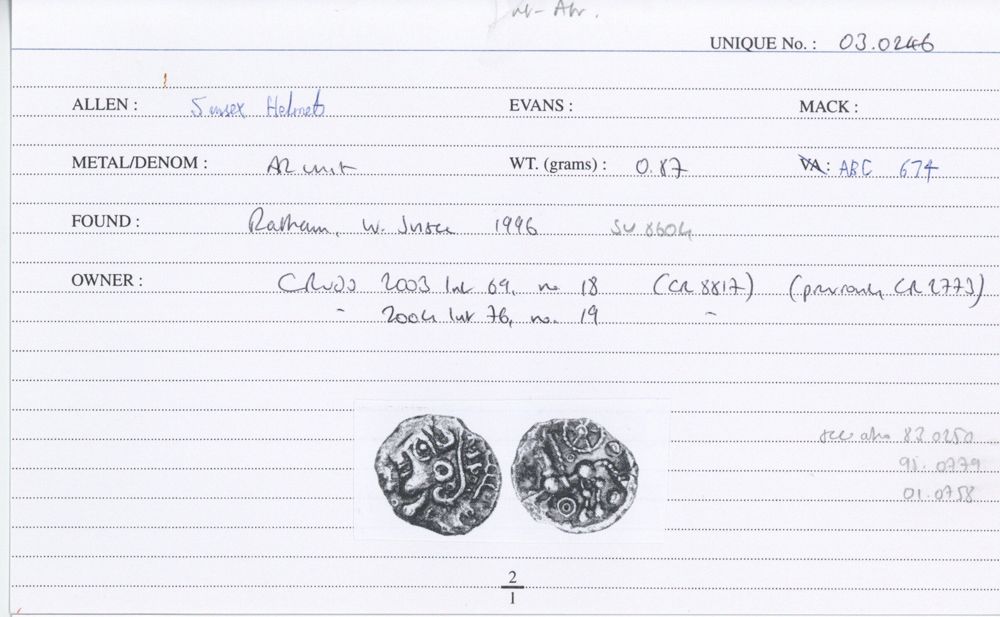 UNIQUE No. : 03.0246
ALLEN : Sussex Helmets EVANS : MACK :
METAL/DENOM : AR unit WT. (grams) : 0.87 VA: ABC 674
FOUND : Ratham, W. Sussex 1996 SU 8604
OWNER : 2003 list 69, no 18 (CR 8817) (previously CR 2773)
2004 list 76, no. 19
see also 83.0250
91.0779
01.0758
2
1